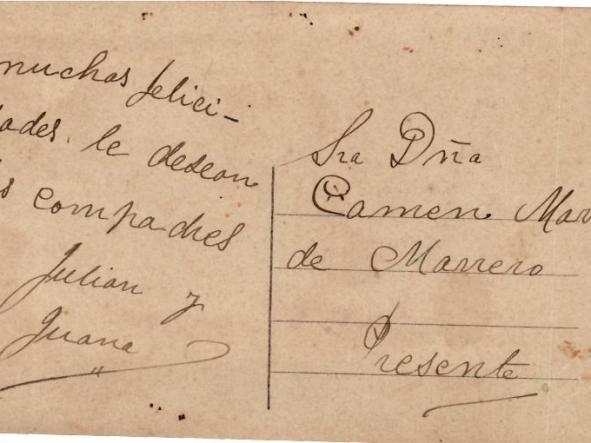 muchas felici-
dades le desean
s compadres
Julian y
Juana
Sra Dña
Camen Mar
de Marrero
Presente